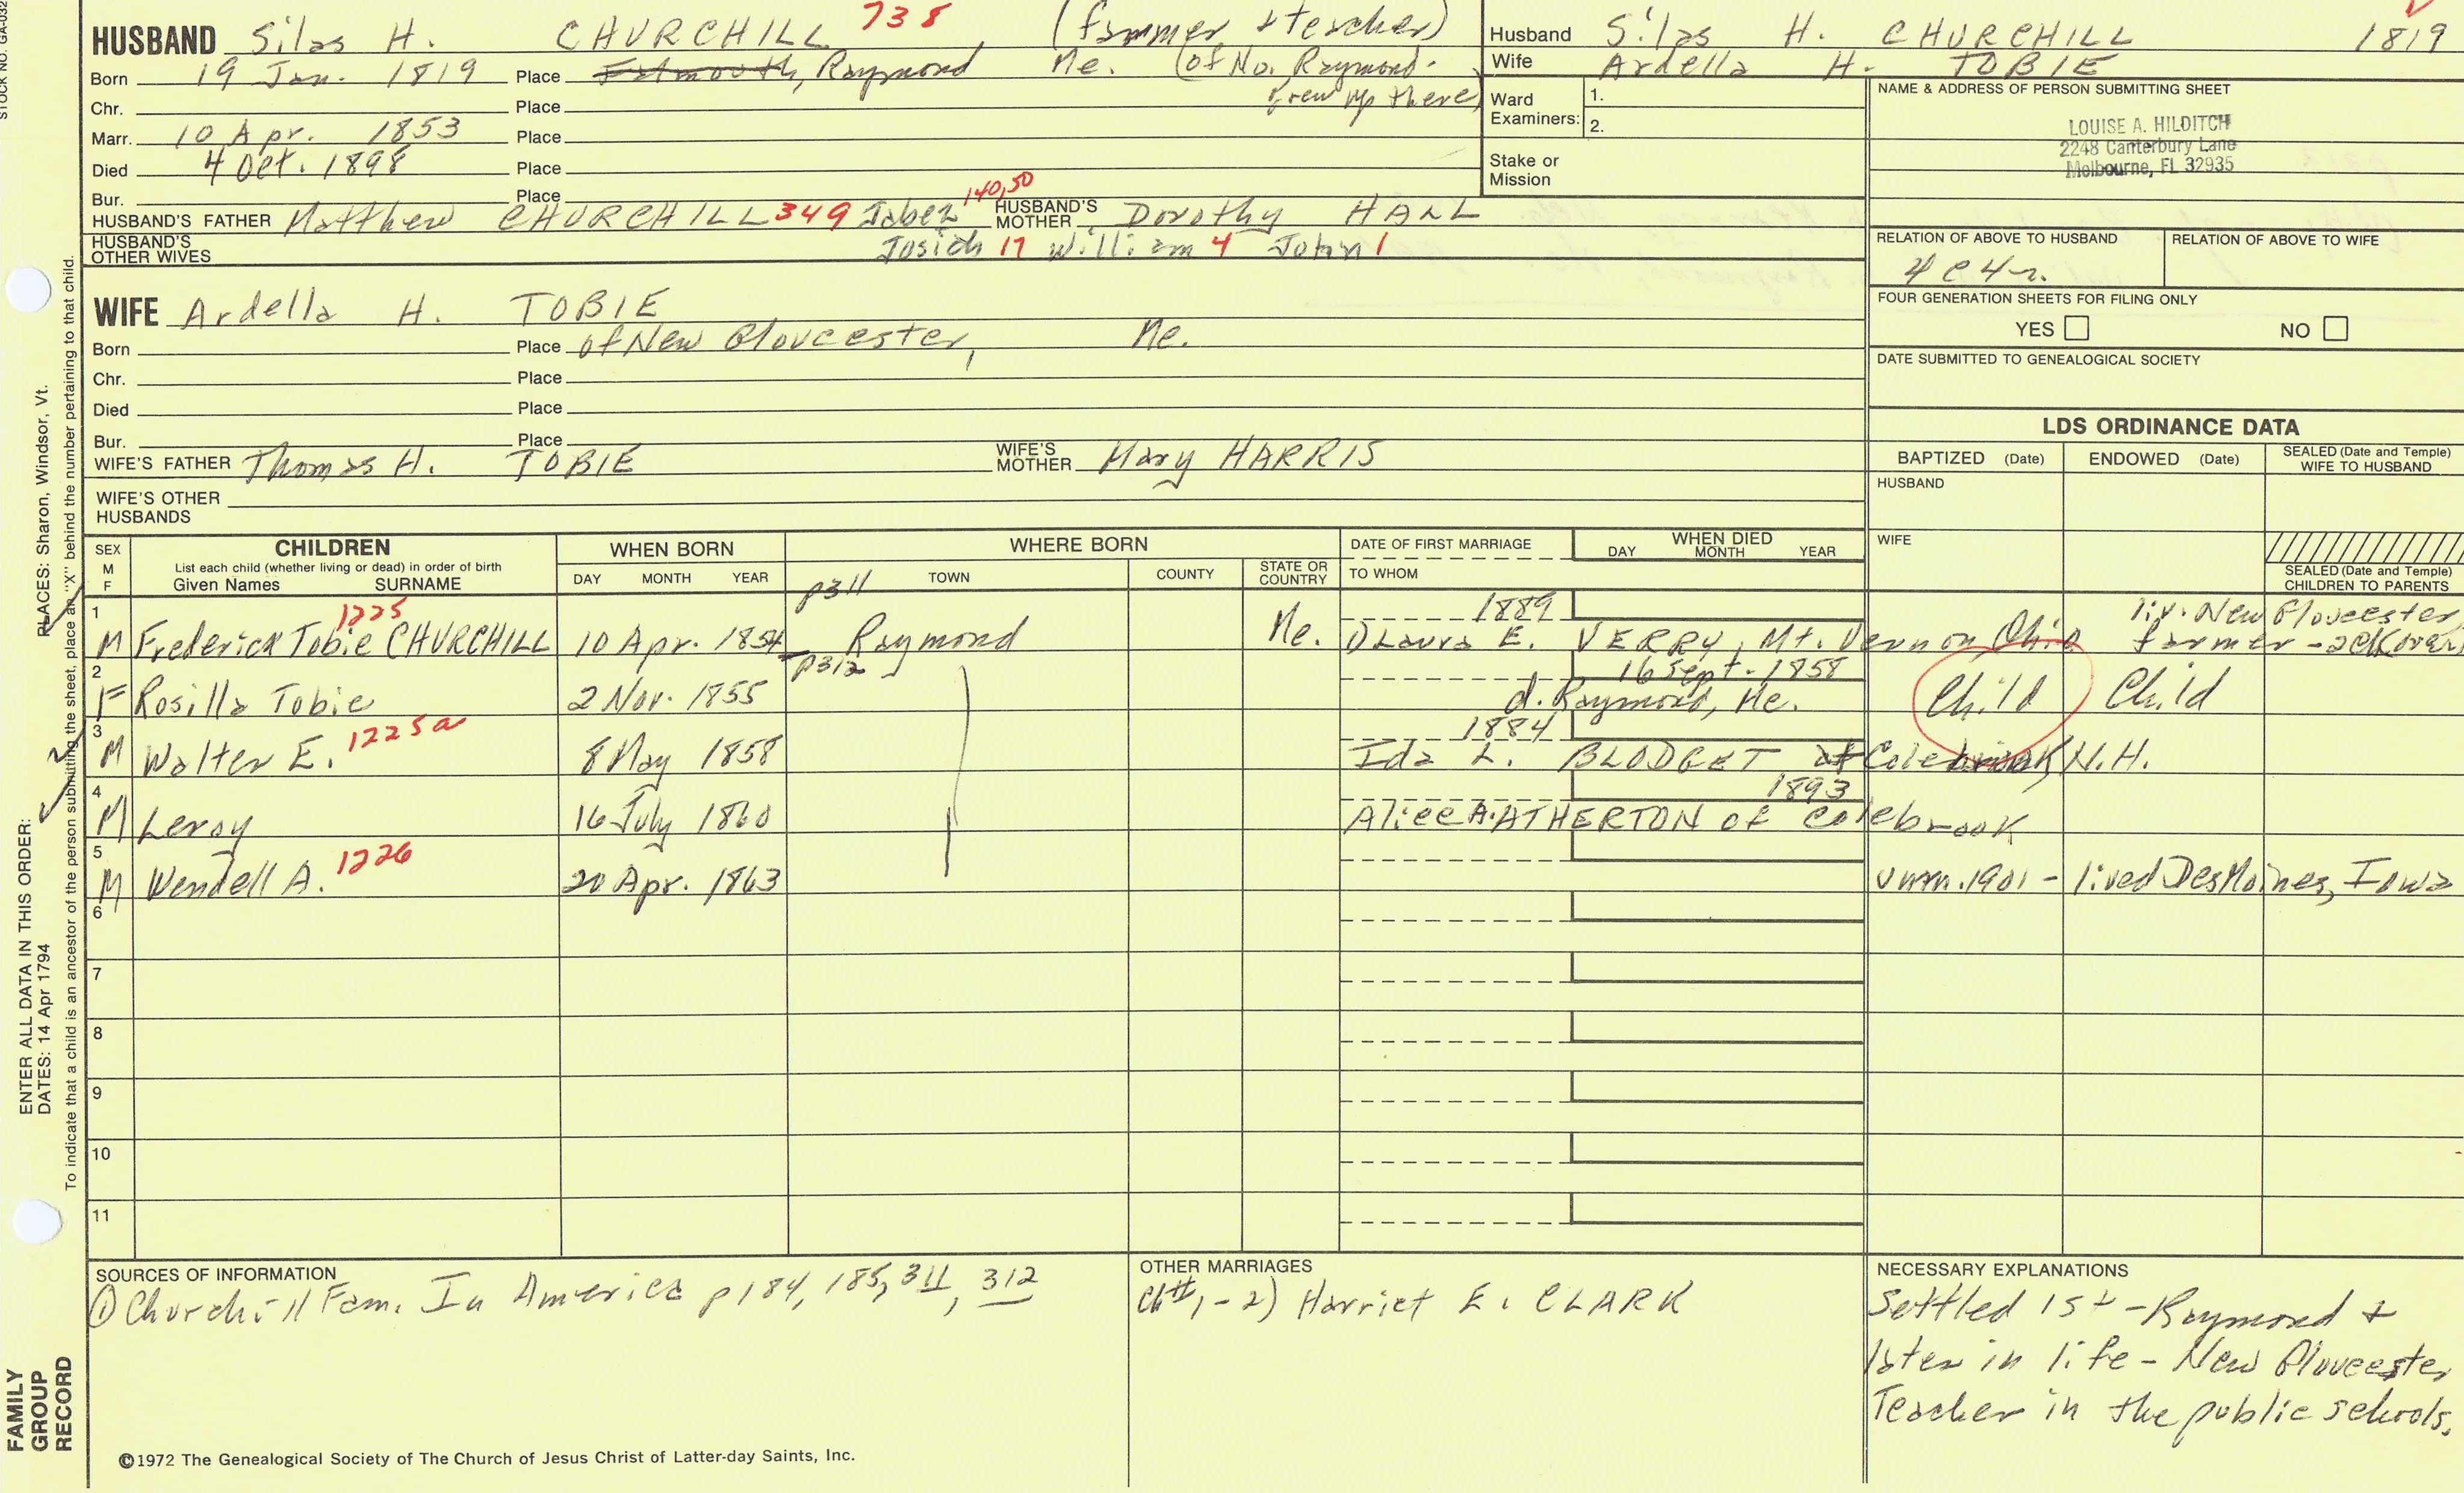 STOCK NO. GA-032
HUSBAND Silas H. CHURCHILL 738 (farmer & teacher)
Born 19 Jan. 1819 Place Falmouth, Raymond Me. (of No. Raymond-
grew up there)
Chr. Place
Marr. 10 Apr. 1853 Place
Died 4 Oct. 1898 Place
Bur. Place
HUSBAND'S FATHER Matthew CHURCHILL 349 Jabez 140,50 HUSBAND'S MOTHER Dorothy HALL
HUSBAND'S OTHER WIVES Josiah 17 William 4 John 1
Husband Silas H. CHURCHILL 1819
Wife Ardella H. TOBIE
Ward Examiners: 1.
2.
Stake or Mission
NAME & ADDRESS OF PERSON SUBMITTING SHEET
LOUISE A. HILDITCH
2248 Canterbury Lane
Melbourne, FL 32935
RELATION OF ABOVE TO HUSBAND RELATION OF ABOVE TO WIFE
4c4r.
FOUR GENERATION SHEETS FOR FILING ONLY
YES NO
DATE SUBMITTED TO GENEALOGICAL SOCIETY
WIFE Ardella H. TOBIE
Born Place of New Gloucester, Me.
Chr. Place
Died Place
Bur. Place
WIFE'S FATHER Thomas H. TOBIE WIFE'S MOTHER Mary HARRIS
WIFE'S OTHER HUSBANDS
LDS ORDINANCE DATA
BAPTIZED (Date) ENDOWED (Date) SEALED (Date and Temple) WIFE TO HUSBAND
HUSBAND
WIFE
SEALED (Date and Temple) CHILDREN TO PARENTS
SEX M F CHILDREN List each child (whether living or dead) in order of birth Given Names SURNAME
WHEN BORN DAY MONTH YEAR
WHERE BORN TOWN COUNTY STATE OR COUNTRY
DATE OF FIRST MARRIAGE TO WHOM
WHEN DIED DAY MONTH YEAR
p311
1 1225 1889 liv. New Gloucester,
M Frederick Tobie CHURCHILL 10 Apr. 1854 Raymond Me. Laura E. VERRY, Mt. Vernon, Ohio farmer
2 p312 16 Sept. 1858
F Rosilla Tobie 2 Nov. 1855 d. Raymond, Me. Child Child
3 1225a 1884
M Walter E. 8 May 1858 Ida L. BLODGET of Colebrook, N.H.
4 1893
M Leroy 16 July 1860 Alice A. ATHERTON of Colebrook
5 1226
M Wendell A. 20 Apr. 1863 unm. 1901 - lived Des Moines, Iowa
6
7
8
9
10
11
SOURCES OF INFORMATION
① Churchill Fam. In America p184, 185, 311, 312
OTHER MARRIAGES
Ch#1 - 2) Harriet E. CLARK
NECESSARY EXPLANATIONS
Settled 1st - Raymond &
later in life - New Gloucester
Teacher in the public schools.
©1972 The Genealogical Society of The Church of Jesus Christ of Latter-day Saints, Inc.
FAMILY
GROUP
RECORD
ENTER ALL DATA IN THIS ORDER:
DATES: 14 Apr 1794
PLACES: Sharon, Windsor, Vt.
To indicate that a child is an ancestor of the person submitting the sheet, place an "X" behind the number pertaining to that child.